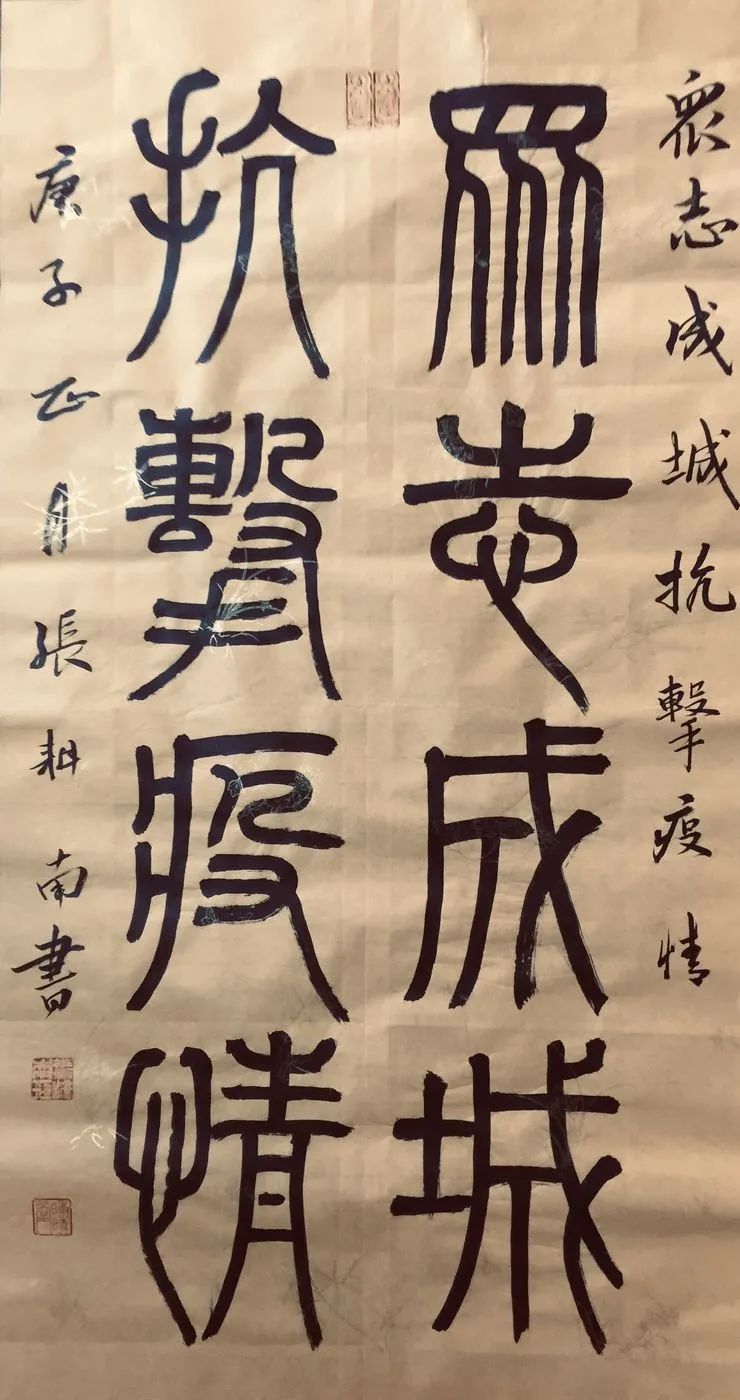 眾志成城抗擊疫情
眾志成城
抗擊疫情
庚子正月張耕南書